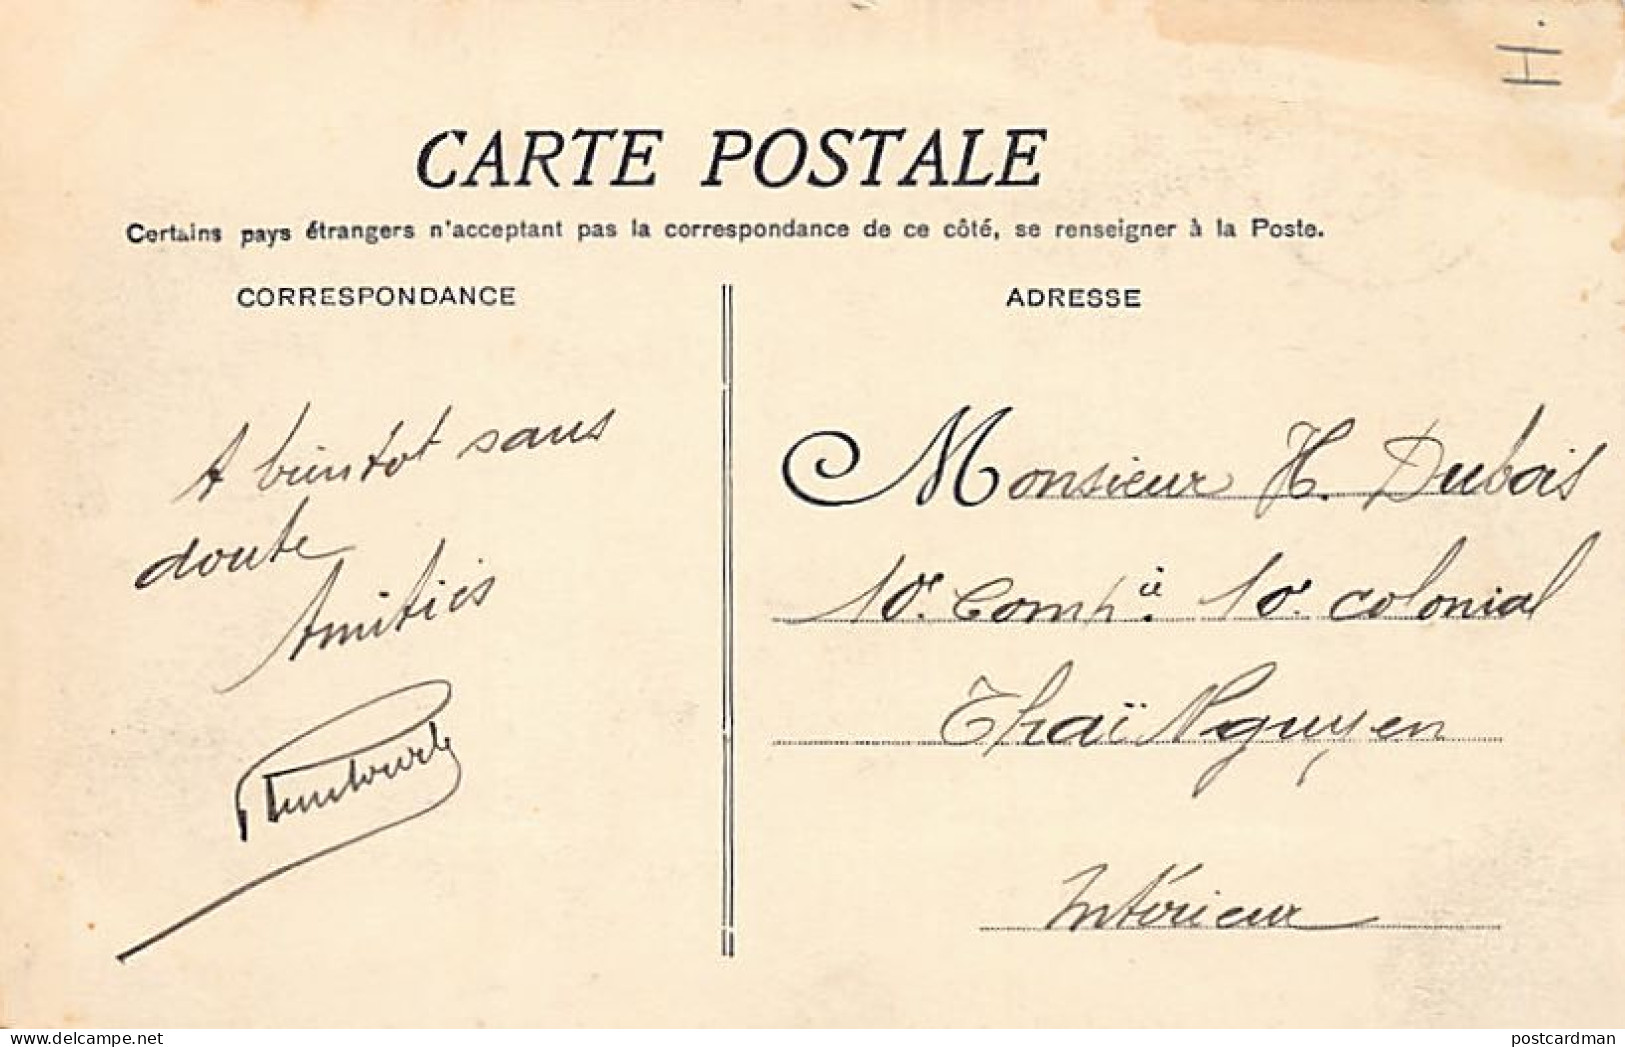 H.
CARTE POSTALE
Certains pays étrangers n'acceptant pas la correspondance de ce côté, se renseigner à la Poste.
CORRESPONDANCE
A bientot sans
doute
Amitiés
ADRESSE
Monsieur H. Dubois
10e. Compie. 10e. colonial
Thaï Nguyen
Intérieur
postcardman